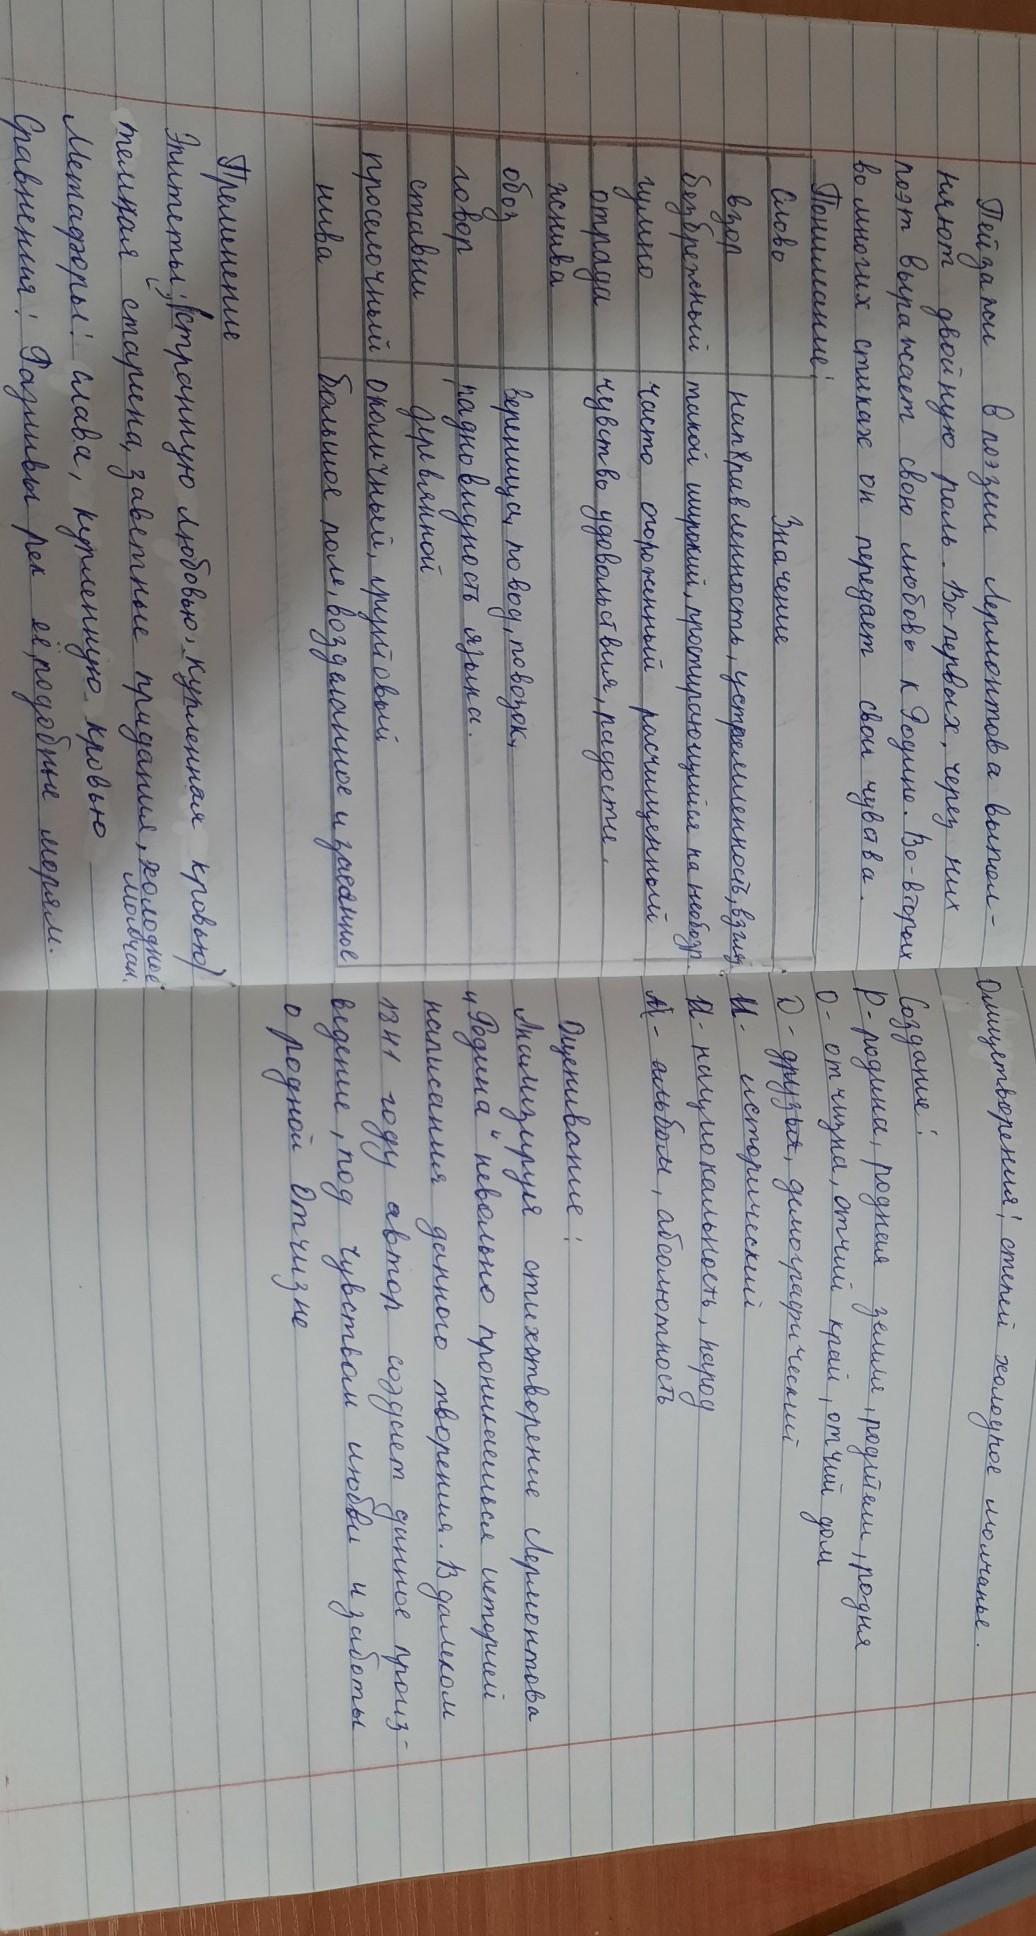 Пейзажи в поэзии Лермонтова выпол-
няют двойную роль. Во-первых, через них
поэт выражает свою любовь к Родине. Во-вторых
во многих стихах он передает свои чувства.
Понимание:
Слово Значение
взор направленность, устремленность, взгляд
безбрежный такой широкий, простирающийся на необозр.
гумно часто огороженный расчищенный
отрада чувство удовольствия, радости.
жнива
обоз вереница, повод, повозок,
говор разновидность языка.
ставни деревянной
проселочный околичный, грунтовый
нива большое поле, возделанное и засеянное
Применение
Эпитеты: (странную любовью, купленная кровью)
темная старина, заветные приданья, холодное
молчан.
Метафоры: слава, купленную кровью
Сравнения: Разливы рек её, подобные морям.
Олицетворения: степей холодное молчанье.
Создание:
Р - родина, родная земля, родители, родня
О - отчизна, отчий край, отчий дом
Д - друзья, демографический
И - исторический
Н - национальность, народ
А - альбом, абсолютность
Оценивание:
Анализируя стихотворение Лермонтова
"Родина" невольно проникаешься историей
написания данного творения. В далеком
1341 году автор создает данное произ-
ведение, под чувством любви и заботы
о родной Отчизне